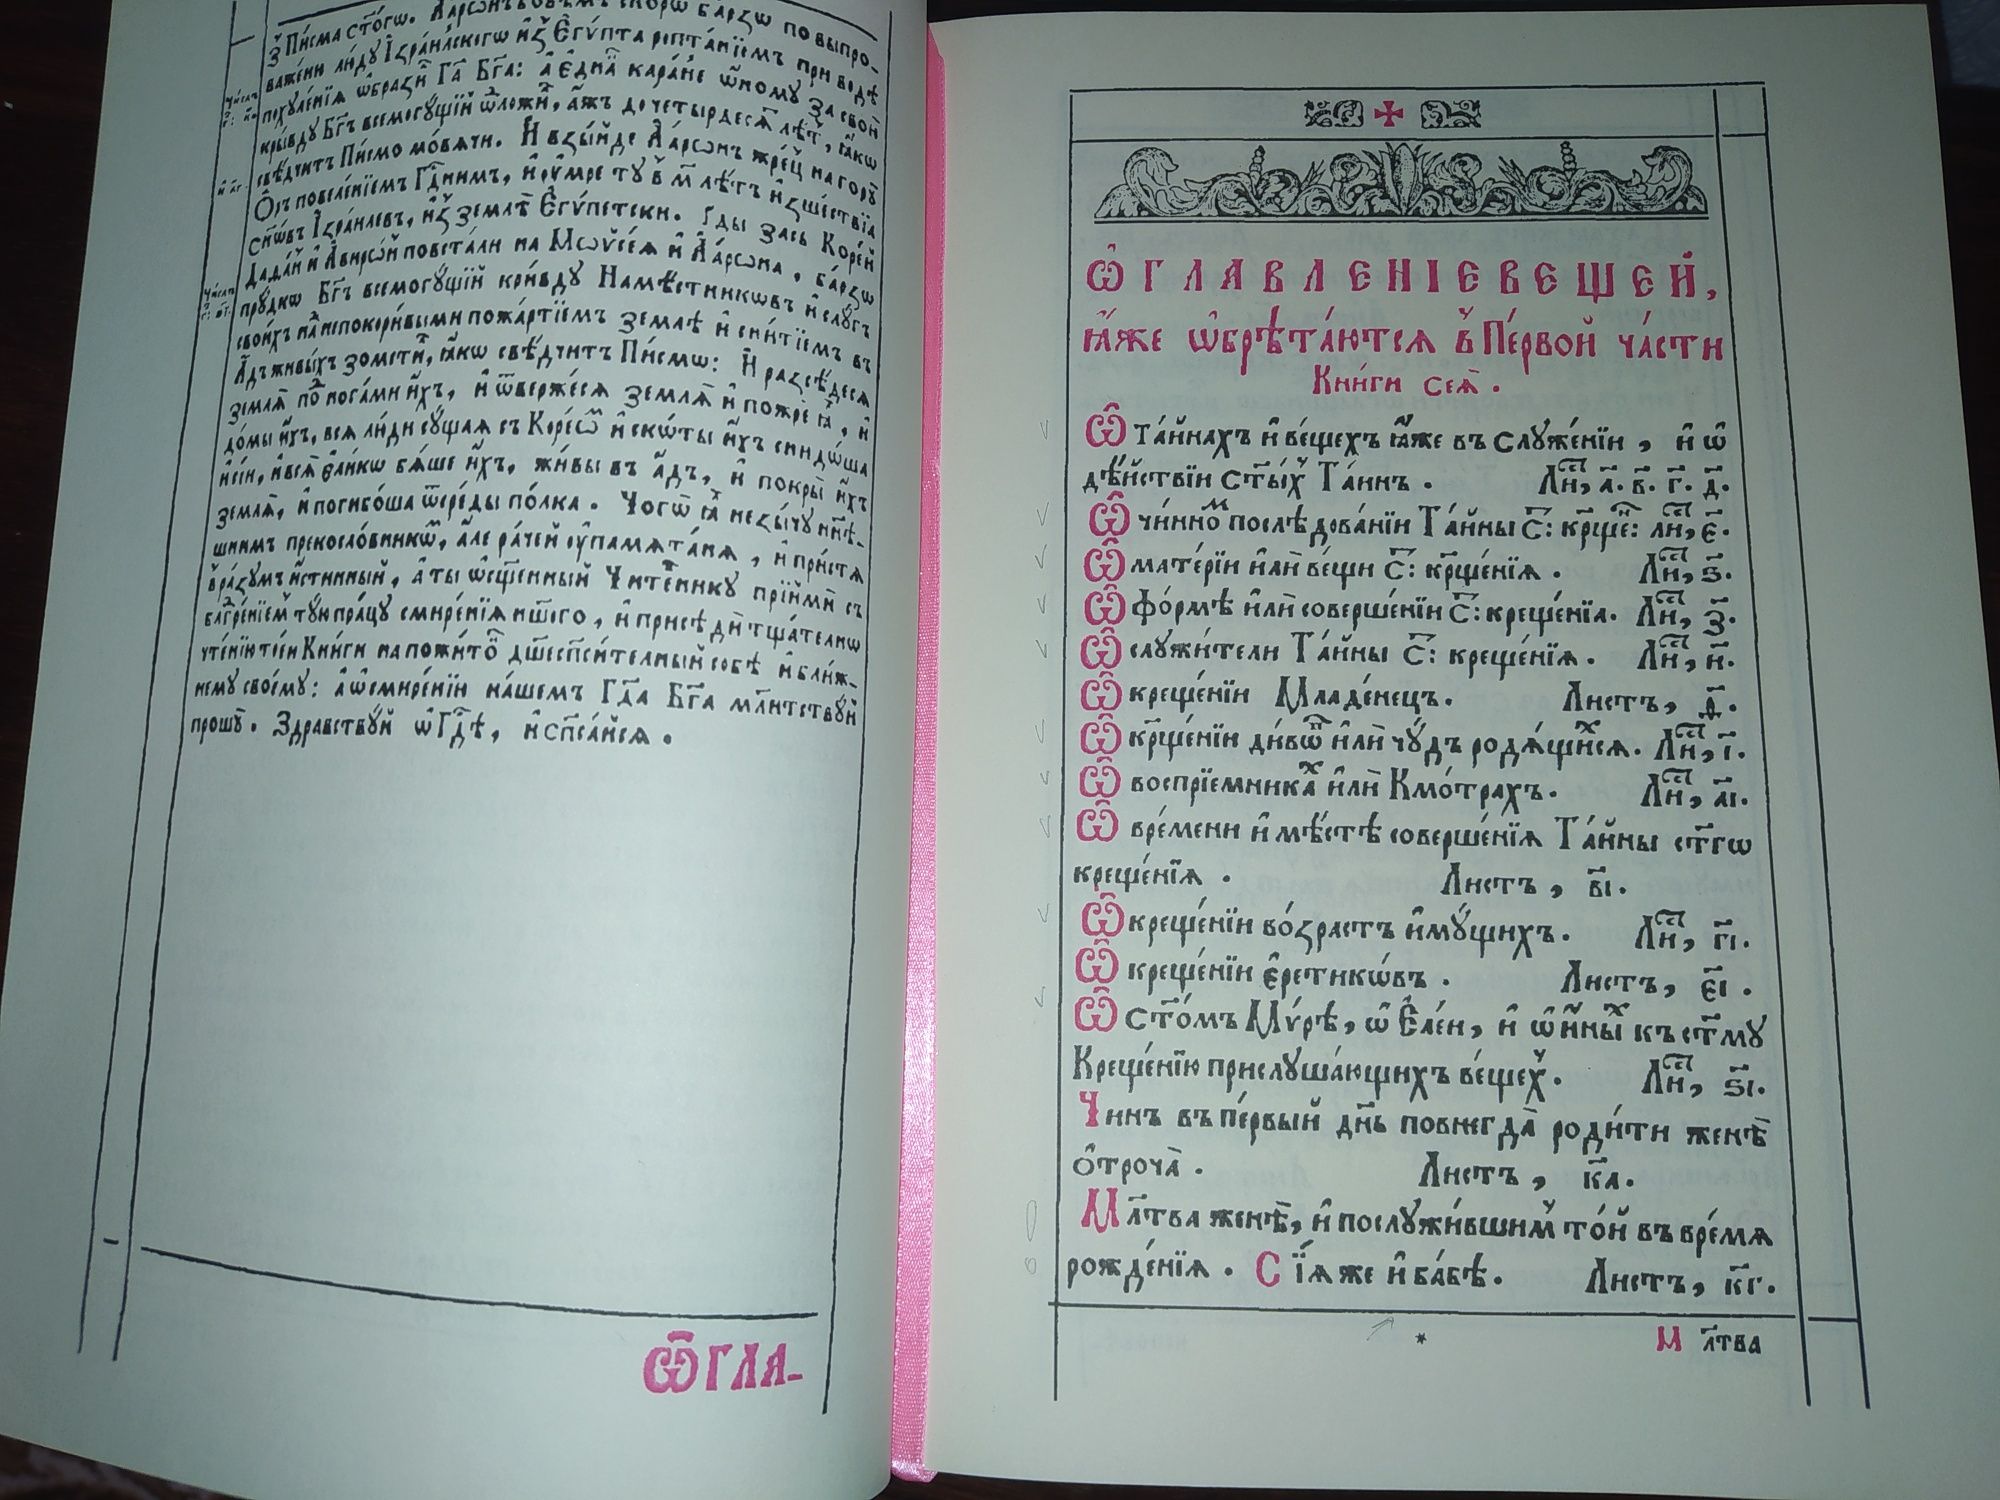 з̾ Пи́сма ст҃о́гѡ. Аарѡнъ бовѣмъ скорѡ ба́рзѡ по выпро-
важе́ни лю́ду І҆зра́илскогѡ и҆з̾ Є҆гѵ́пта ропта́нїемъ при водѣ
похуле́нїѧ ѡ҆брази́л Гда Бг҃а: а҆ є҆дна́к кара́нїе ѡ҆ному за свою̀
кры́вду Бг҃ъ всемогу́щїй ѿложи́л, а҆жъ до четырдесѧ́т лѣ́т, ꙗ҆кѡ
свѣ́дчитъ Пи́смо мо́вѧчи. И҆ взы́йде А҆арѡнъ жре́ц на гору̀
Ѻ҆ръ повеле́нїемъ Гдⷭ҇нимъ, и҆ ᲂу҆́мре ту̀ в̾ м҃ лѣ́тъ и҆зше́ствїа
сн҃ѡ́въ І҆зра́илевъ, и҆з̾ землѣ̀ Є҆гѵ́петски. Гды́ засъ Коре́й
Дада́н и҆ А҆вирѡ́н повста́ли на Мѡѷсе́ѧ и҆ А҆а́рѡна, ба́рзѡ
пру́дкѡ Бг҃ъ всемогу́щїй кри́вду Намѣ́стникѡвъ и҆ слу́гъ
свои́хъ над̾ непокори́выми пожа́ртїемъ землѣ̀ и҆ сни́тїемъ въ
А҆́дъ живы́хъ зомсти́л, ꙗ҆кѡ свѣ́дчитъ Пи́смѡ: И҆ разсѣ́десѧ
землѧ̀ под̾ нога́ми и҆́хъ, и҆ ѿверже́сѧ землѧ̀ и҆ пожрѐ ꙗ҆̀, и҆
до́мы и҆́хъ, всѧ лю́ди су́щаѧ съ Коре́ѡм и҆ ско́ты и҆́хъ снидо́ша
и҆ сіи, и҆ всѧ̀ є҆ли́кѡ бѧ́ше и҆́хъ, жи́вы въ а҆дъ, и҆ покры̀ и҆́хъ
землѧ̀, и҆ погибо́ша ѿ среды̀ по́лка. Чогѡ̀ ꙗ҆̀ незы́чу нн҃ѣ-
шнимъ прекосло́вникѡм, а҆ле ра́чей ᲂу҆памѧта́нїѧ, и҆ прі́йстѧ
в̾ ра́зумъ и҆́стинный, а҆ ты̀ ѡ҆сщ҃е́нный Чите́лнику прїймѝ съ
благодаре́нїем тую пра́цу смире́нїѧ на́шего, и҆ присѣдѝ тща́телнѡ
чте́нїю тое́и Кни́ги на пожи́ток дш҃еспⷭ҇и́телный собѣ̀ и҆ бли́ж-
нему своему̀: а҆ ѡ҆ смире́нїи на́шемъ Гдⷭ҇а Бг҃а мл҃итству́й
прошу̀. Здра́вствуй ѡ҆ Гдⷭ҇ѣ, и҆ спⷭ҇а́йсѧ.
Ѡ҆гла-
Ѡ҆ГЛАВЛЕНІЕ ВЕЩЕЙ,
ꙗ҆́же ѡ҆брѣта́ютсѧ в̾ Пе́рвой ча́сти
Кни́ги сеѧ̀.
Ѡ҆ та́йнахъ и҆ ве́щехъ ꙗ҆́же въ служе́нїи, и҆ ѡ҆
дѣ́йствїи ст҃ы́х Та́инъ. Лиⷭ҇, а҃. в҃. г҃. д҃.
Ѡ҆ чи́нном послѣ́дованїи Та́йны С҃: крщ҃е: лиⷭ҇, є҃.
Ѡ҆ мате́рїи и҆лѝ ве́щи С҃: крщ҃е́нїѧ. Лиⷭ҇, ѕ҃.
Ѡ҆ фо́рмѣ и҆лѝ соверше́нїи С҃: креще́нїѧ. Лиⷭ҇, з҃.
Ѡ҆ служи́тели Та́йны С҃: креще́нїѧ. Лиⷭ҇, и҃.
Ѡ҆ креще́нїи Младе́нецъ. Листъ, ѳ҃.
Ѡ҆ крще́нїи ди́вѡв и҆лѝ чу́дъ родѧ́щихсѧ. Лиⷭ҇, і҃.
Ѡ҆ воспрїе́мниках и҆лѝ Кмо́трахъ. Лиⷭ҇, а҃і.
Ѡ҆ вре́мени и҆ мѣ́стѣ соверше́нїѧ Та́йны ст҃гѡ
креще́нїѧ. Листъ, в҃і.
Ѡ҆ креще́нїи во́зрастъ и҆му́щихъ. Лиⷭ҇, г҃і.
Ѡ҆ креще́нїи є҆ретикѡ́въ. Листъ, є҃і.
Ѡ҆ ст҃о́мъ Мѵ́рѣ, ѡ҆ Є҆ле́и, и҆ ѡ҆ и҆́нных къ ст҃му
Креще́нїю прислуша́ющихъ ве́щех. Лиⷭ҇, ѕ҃і.
Чинъ въ пе́рвый дн҃ь повнегда̀ роди́ти женѣ̀
ѻ҆троча̀. Листъ, к҃а.
Мл҃тва женѣ̀, и҆ послужи́вшим то́й въ вре́мѧ
рожде́нїѧ. Сїѧ же и҆ ба́бѣ. Листъ, к҃г.
* Мл҃тва